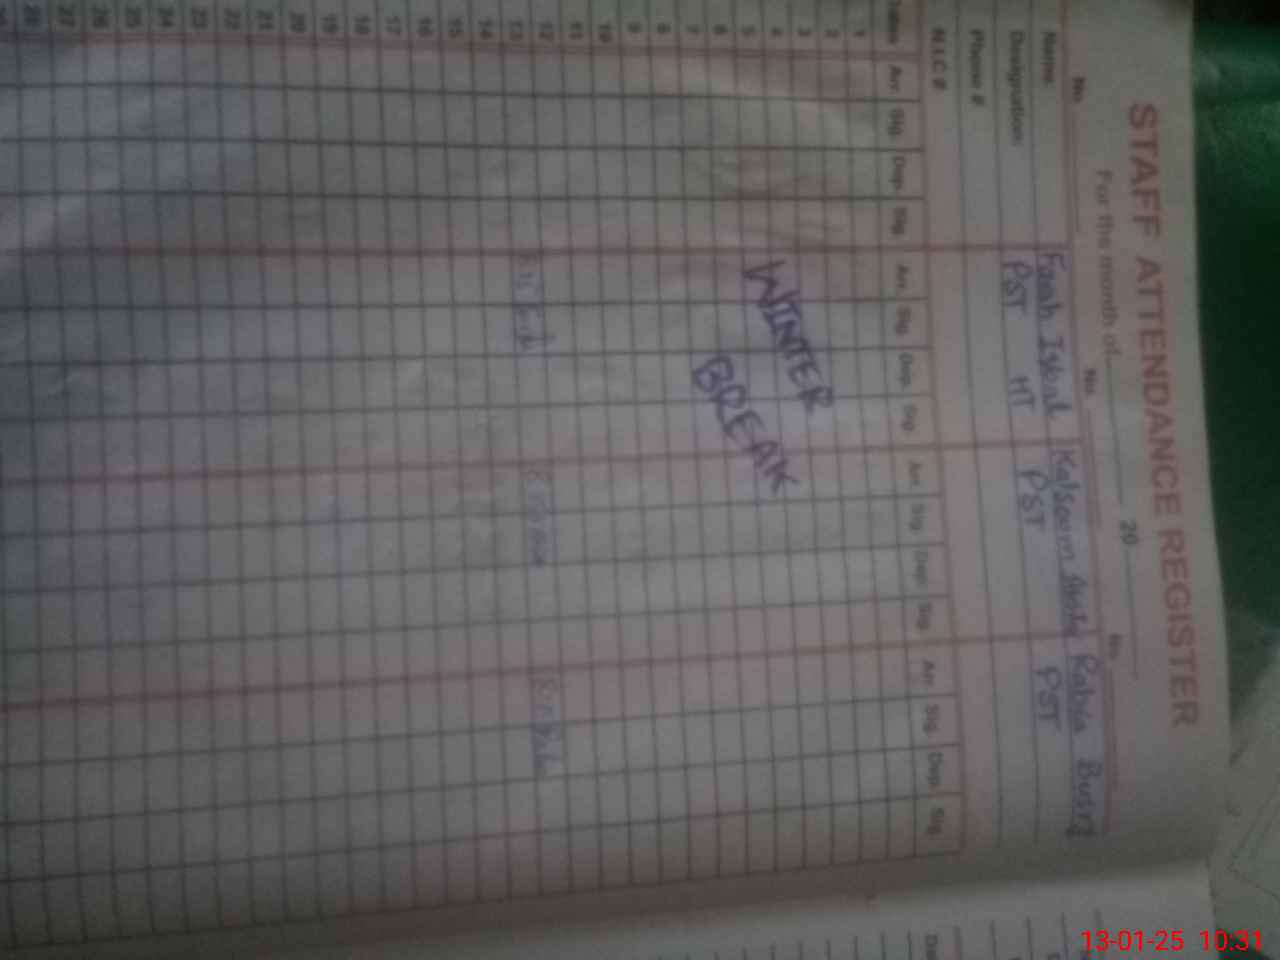 STAFF ATTENDANCE REGISTER
For the month of 20
No. No. No.
Name: Farah Iqbal Kalsoom Rabia Busra
Designation: PST HT PST PST
Phone #
N.I.C #
Dates Arr. Sig. Dep. Sig. Arr. Sig. Dep. Sig. Arr. Sig. Dep. Sig. Arr. Sig. Dep. Sig.
1
2
3
4
5
6
7
8
9
10
11
12
13
14
15
16
17
18
19
20
21
22
23
24
25
26
27
28
WINTER
BREAK
13-01-25 10:31